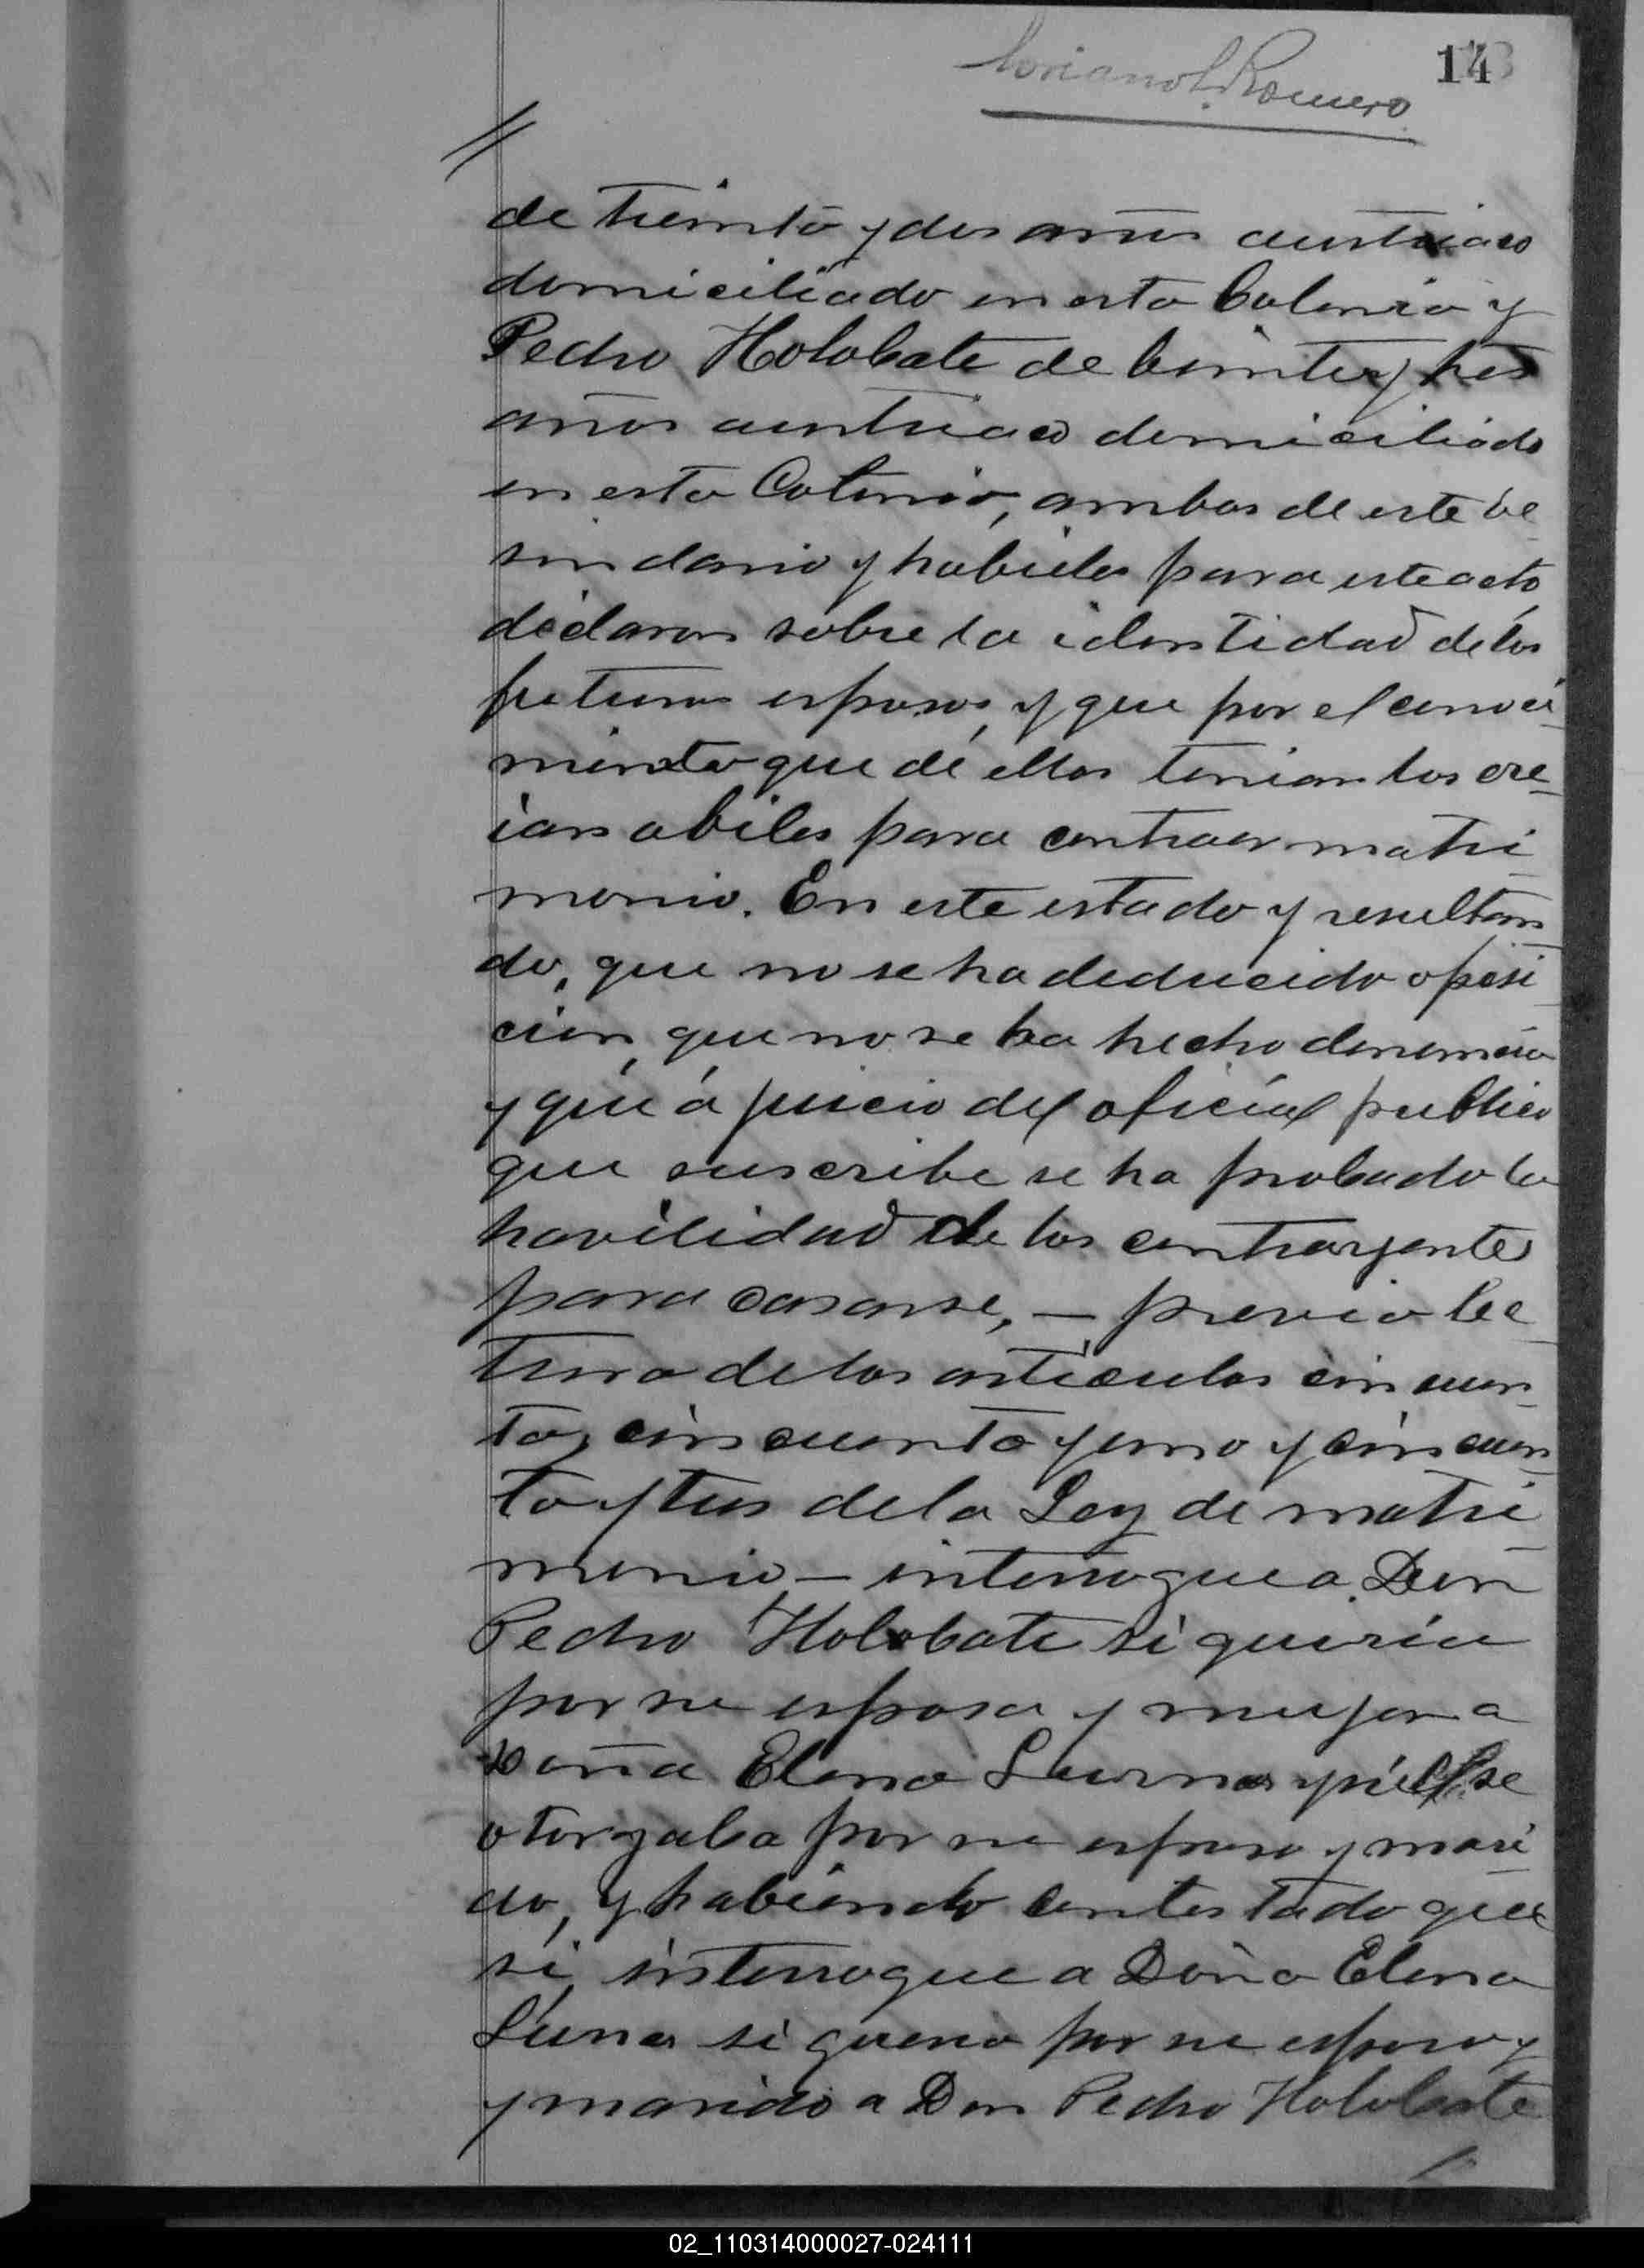 Soriano L. Romero
14
de treinta y dos años austriaco
domiciliado en esta Colonia y
Pedro Holobate de veinte y tres
años austriaco domiciliado
en esta Colonia, ambos de este be
sindario y habiles para este acto
declaran sobre la identidad de los
futuros esposos, y que por el conoci
miento que de ellos tenian los cre
ian abiles para contraer matri
monio. En este estado y resultan
do, que no se ha deducido oposi
cion, que no se ha hecho denuncia
y que á juicio del oficial publico
que suscribe se ha probado la
havilidad de los contrayentes
para casarse, — previo lec
tura de los articulos cincuen
ta, cincuenta y uno y cincuen
ta y tres de la Ley de matri
monio — interrogue a Don
Pedro Holobate si queria
por su esposa y mujer a
Doña Elena Luna y si el se
otorgaba por su esposo y mari
do, y habiendo contestado que
si, interrogue a Doña Elena
Luna si queria por su esposo y
y marido a Don Pedro Holobate
02_110314000027-024111